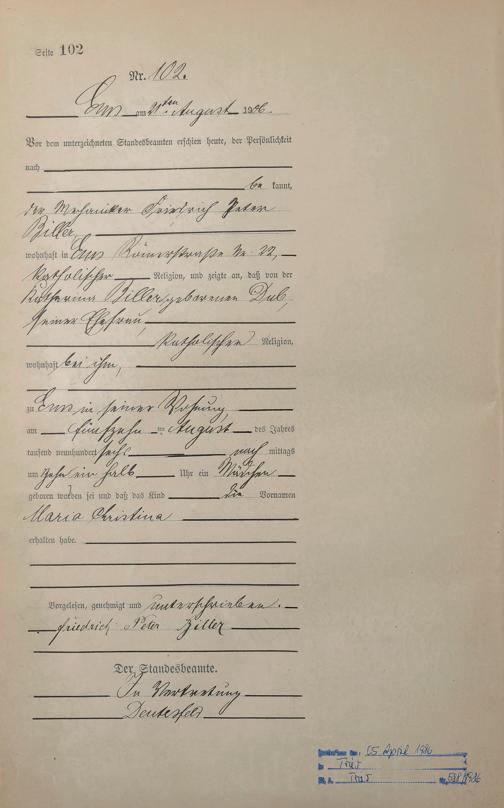 Seite 102
Nr. 102.
Ems am 21ten August 1906.
Vor dem unterzeichneten Standesbeamten erschien heute, der Persönlichkeit
nach
be kannt,
der Mechaniker Friedrich Peter
Biller,
wohnhaft in Ems Römerstraße Nr. 22,
katholischer Religion, und zeigte an, daß von der
Katharina Biller, geborenen Dul,
seiner Ehefrau,
katholischer Religion,
wohnhaft bei ihm,
zu Ems in seiner Wohnung,
am fünfzehn ten August des Jahres
tausend neunhundert sechs nach mittags
um zehn ein halb Uhr ein Mädchen
geboren worden sei und daß das Kind die Vornamen
Maria Christina
erhalten habe.
Vorgelesen, genehmigt und unterschrieben.
Friedrich Peter Biller
Der Standesbeamte.
In Vertretung
05 April
Trier
Trier